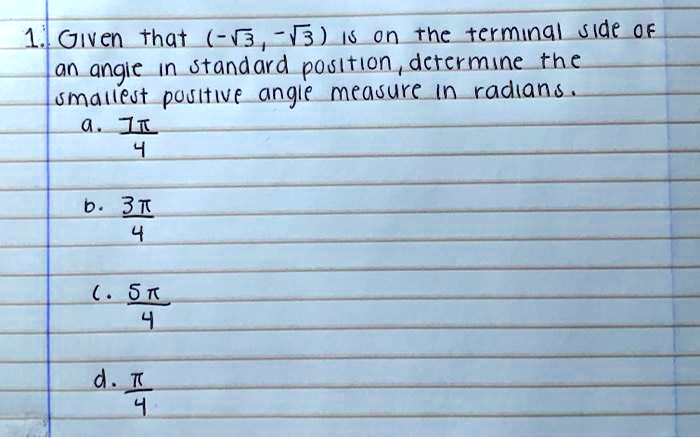 1. Given that (-√3, -√3) is on the terminal side of
an angle in standard position, determine the
smallest positive angle measure in radians.
a. 7π/4
b. 3π/4
c. 5π/4
d. π/4